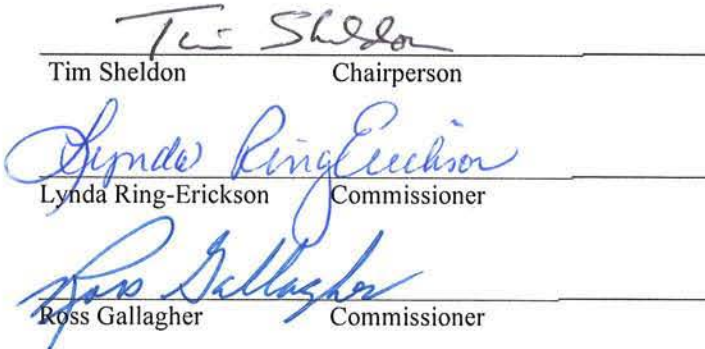 Tim Sheldon
Tim Sheldon Chairperson
Lynda RingErickson
Lynda Ring-Erickson Commissioner
Ross Gallagher
Ross Gallagher Commissioner